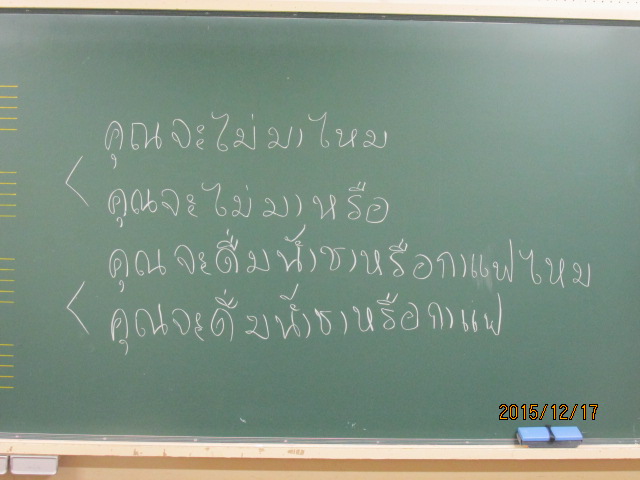 คุณจะไม่มาไหม
คุณจะไม่มาหรือ
คุณจะดื่มน้ำชาหรือกาแฟไหม
คุณจะดื่มน้ำชาหรือกาแฟ
2015/12/17